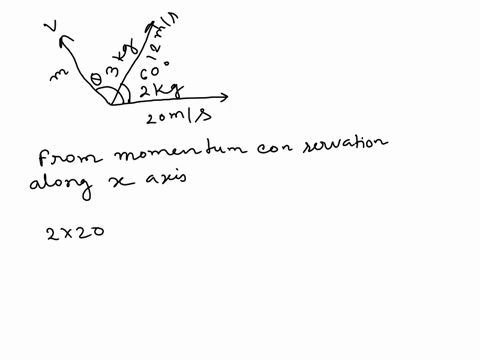 V
m
θ
3 kg
12 m/s
60°
2 kg
20 m/s
From momentum con servation
along x axis
2×20